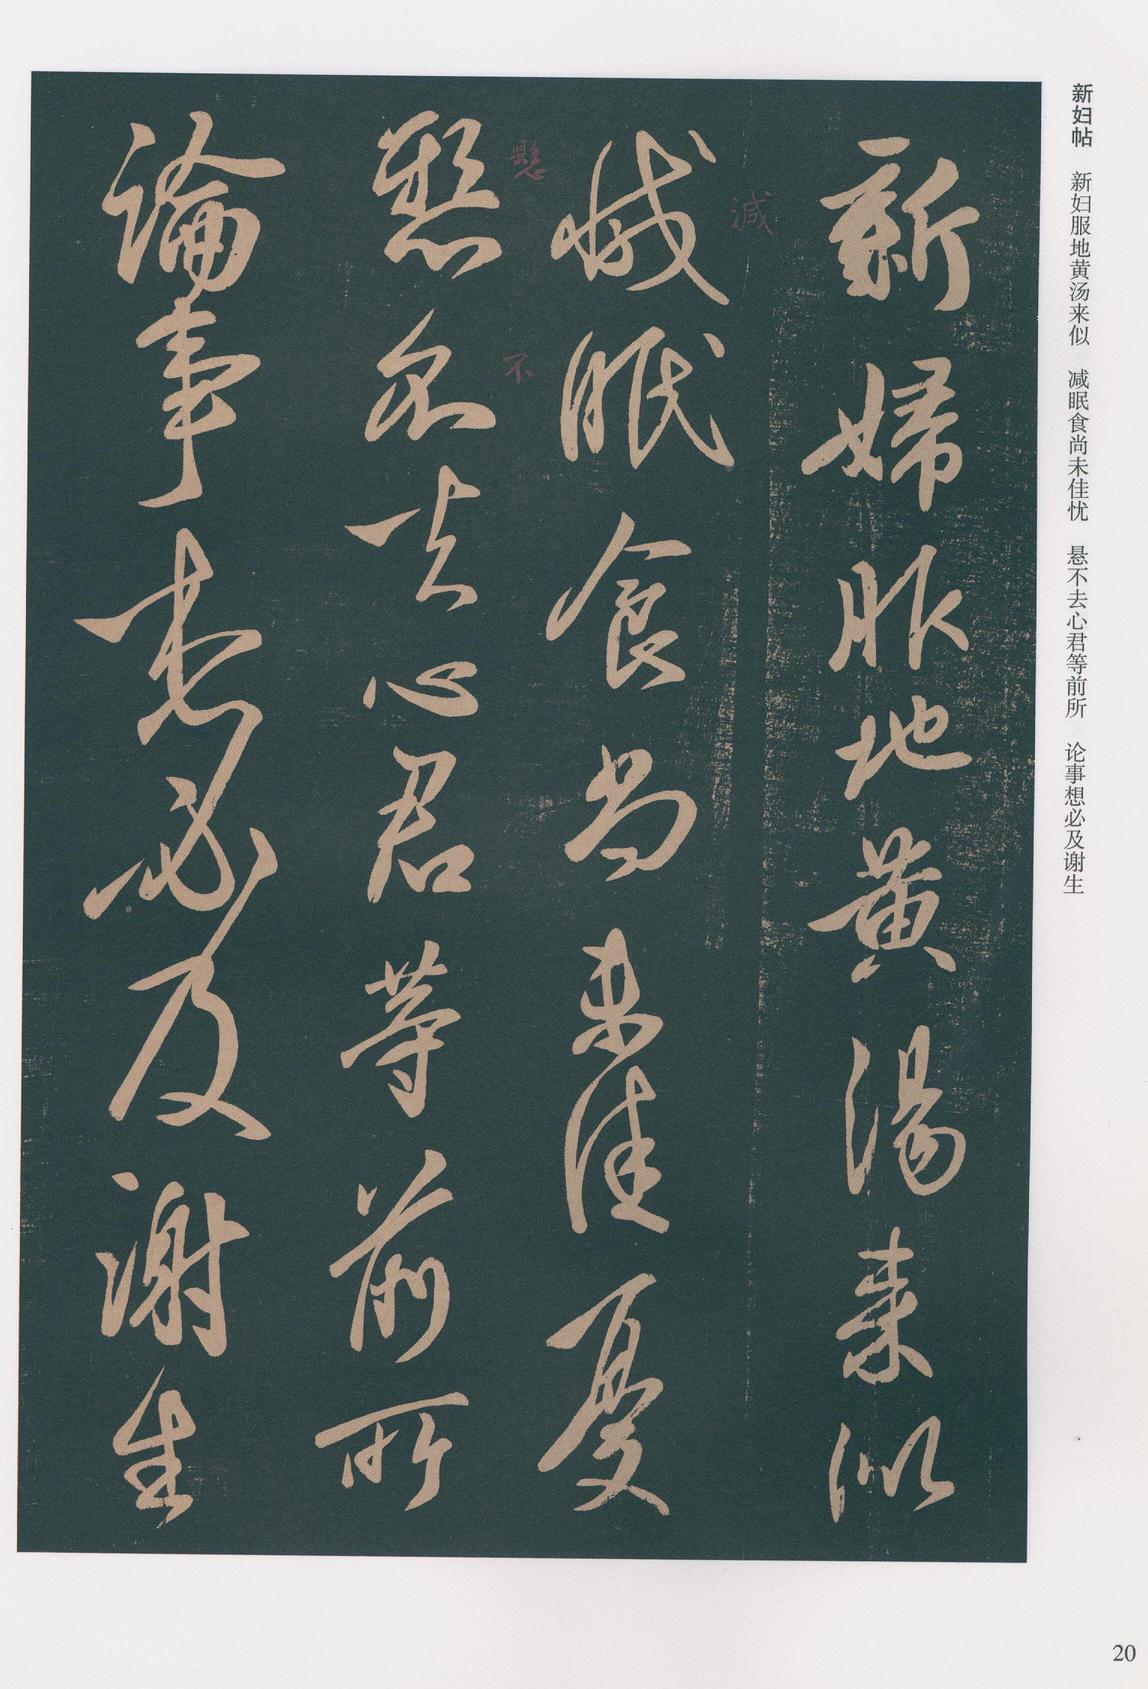 新妇帖 新妇服地黄汤来似 减眠食尚未佳忧 悬不去心君等前所 论事想必及谢生
新婦服地黄湯来似
減
減眠食尚未佳憂
懸
不
懸不去心君等前所
論事想必及謝生
20